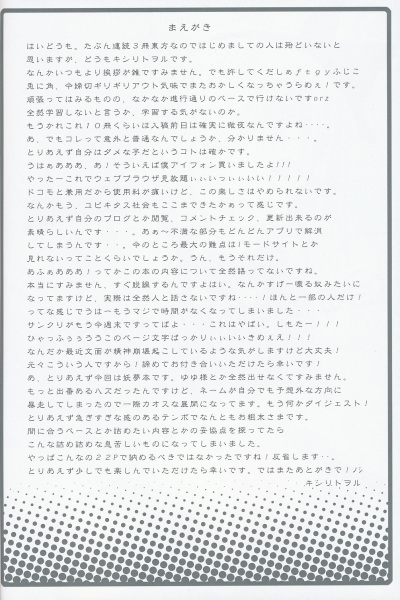 まえがき
はいどうも。たぶん連続3冊東方なのではじめましての人は殆どいないと
思いますが、どうもキシリトヲルです。
なんかいつもより挨拶が雑ですみません。でも許してくだしあｆｔｇｙふじこ
兎に角、今締切ギリギリアウト気味でまたおかしくなっちゃうらめぇ！です。
頑張ってはみるものの、なかなか進行通りのペースで行けないですorz
全然学習しないと言うか、学習する気がないのか。
もうかれこれ１０冊くらいは入稿前日は確実に徹夜なんですよね・・・・。
あ、でもコレって意外と普通なんでしょうか、分かりません・・・。
とりあえず自分はダメな子だというコトは確かです。
うはぁあああ、あ！そういえば僕アイフォン買いましたよ!!!
やったーこれでウェブブラウザ見放題ぃぃいつぃぃいい！！！！！
ドコモと兼用だから使用料が痛いけど、この楽しさはやめられないです。
なんかもう、ユビキタス社会もここまできたかぁって感じです。
とりあえず自分のブログとか閲覧、コメントチェック、更新出来るのが
素晴らしいんです・・・。あぁ～不満な部分もどんどんアプリで解消
してしまうんです・・。今のところ最大の難点はiモードサイトとか
見れないってことくらいでしょうか。うん、もうそれだけ。
あふぁあああ！ってかこの本の内容について全然語ってないですね。
本当にすみません、すぐ脱線するんですよはい。なんかすげー喋る奴みたいに
なってますけど、実際は全然人と話さないですね・・・・！ほんと一部の人だけ！
ってな感じでうはーもうマジで時間がなくなってしまいました・・・
サンクリがもう今週末ですってばよ・・・これはやばい。しもたー！！！
ひゃっふぅぅううこのページ文字ばっかりぃぃいいきめぇえ！！！
なんだか最近文面が精神崩壊起こしているような気がしますけど大丈夫！
元々こういう人ですから！諦めてお付き合いいただけたら幸いです！
あ、とりあえず今回は妖夢本です。ゆゆ様とか全然出せなくてすみません。
もっと出番めるハズだったんですけど、ネームが自分でも予想外な方向に
暴走してしまったので一際カオスな展開になってます。もう何かダイジェスト！
とりあえず急ぎすぎな感のあるテンポでなんともお粗末さまです。
間に合うペースとか詰めたい内容とかの妥協点を探ってたら
こんな詰め詰めな息苦しいものになってしまいました。
やっぱこんなの２２Pで納めるべきではなかったですね！反省します・・。
とりあえず少しでも楽しんでいただけたら幸いです。ではまたあとがきで！ノシ
キシリトヲル